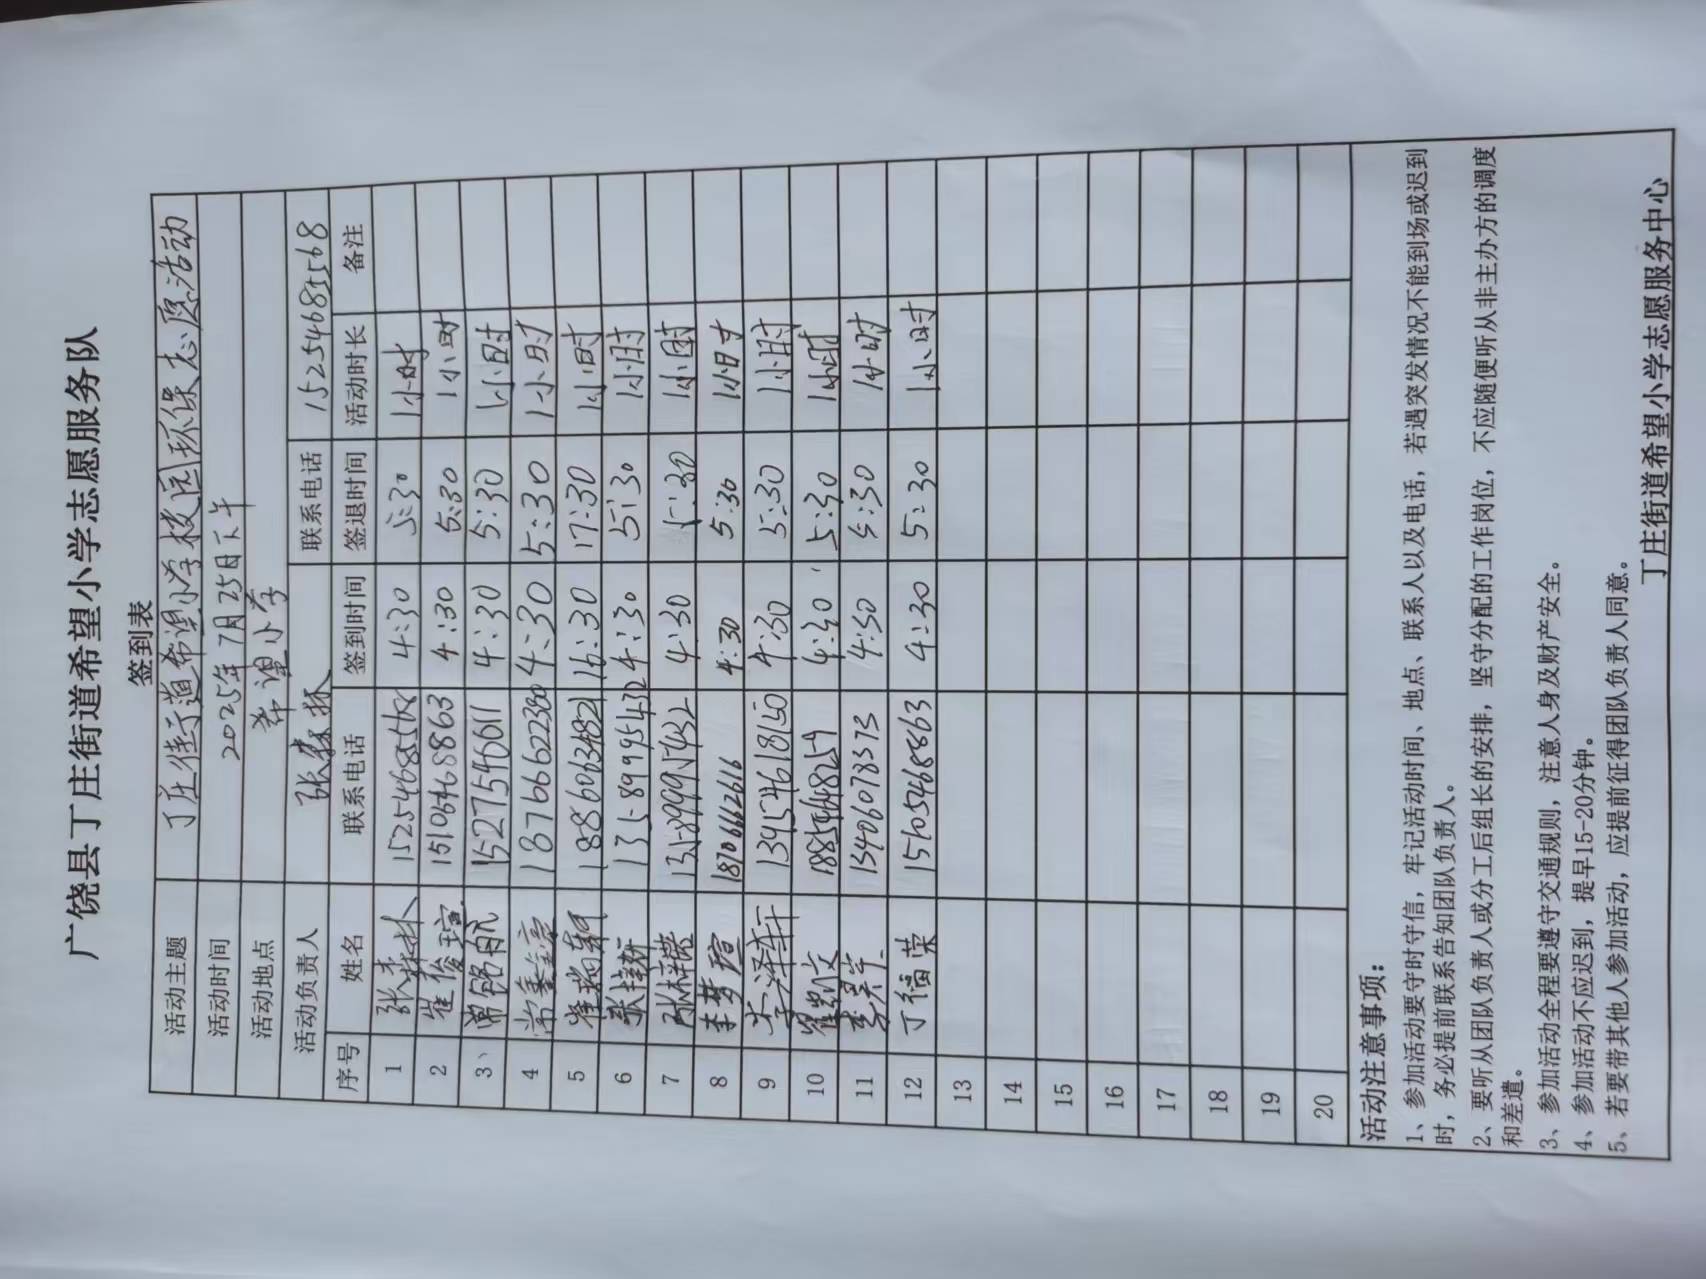 广饶县丁庄街道希望小学志愿服务队
签到表
活动主题 丁庄街道希望小学校园环保志愿活动
活动时间 2025年7月25日下午
活动地点 希望小学
活动负责人 张森林 联系电话 15254685568
序号 姓名 联系电话 签到时间 签退时间 活动时长 备注
1 张森林 15254685568 4:30 5:30 1小时
2 崔俊瑄 15106468863 4:30 5:30 1小时
3、 常铭航 15275466611 4:30 5:30 1小时
4 常鑫 18766622380 4:30 5:30 1小时
5 崔 18860634821 16:30 17:30 1小时
6 张梓妍 13589995432 4:30 5:30 1小时
7 张梓 13589995432 4:30 5:30 1小时
8 李梦瑄 18706662616 4:30 5:30 1小时
9 李泽 13454618150 4:30 5:30 1小时
10 崔凯文 4:30 5:30 1小时
11 李昊 13406073373 4:30 5:30 1小时
12 丁福荣 15105468863 4:30 5:30 1小时
13
14
15
16
17
18
19
20
活动注意事项：
1、参加活动要守时守信，牢记活动时间、地点、联系人以及电话，若遇突发情况不能到场或迟到
时，务必提前联系告知团队负责人。
2、要听从团队负责人或分工后组长的安排，坚守分配的工作岗位，不应随便听从非主办方的调度
和差遣。
3、参加活动全程要遵守交通规则，注意人身及财产安全。
4、参加活动不应迟到，提早15-20分钟。
5、若要带其他人参加活动，应提前征得团队负责人同意。
丁庄街道希望小学志愿服务中心